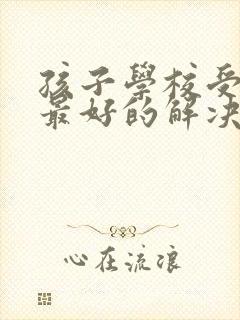 孩子學校受
最好的解决
心在流浪